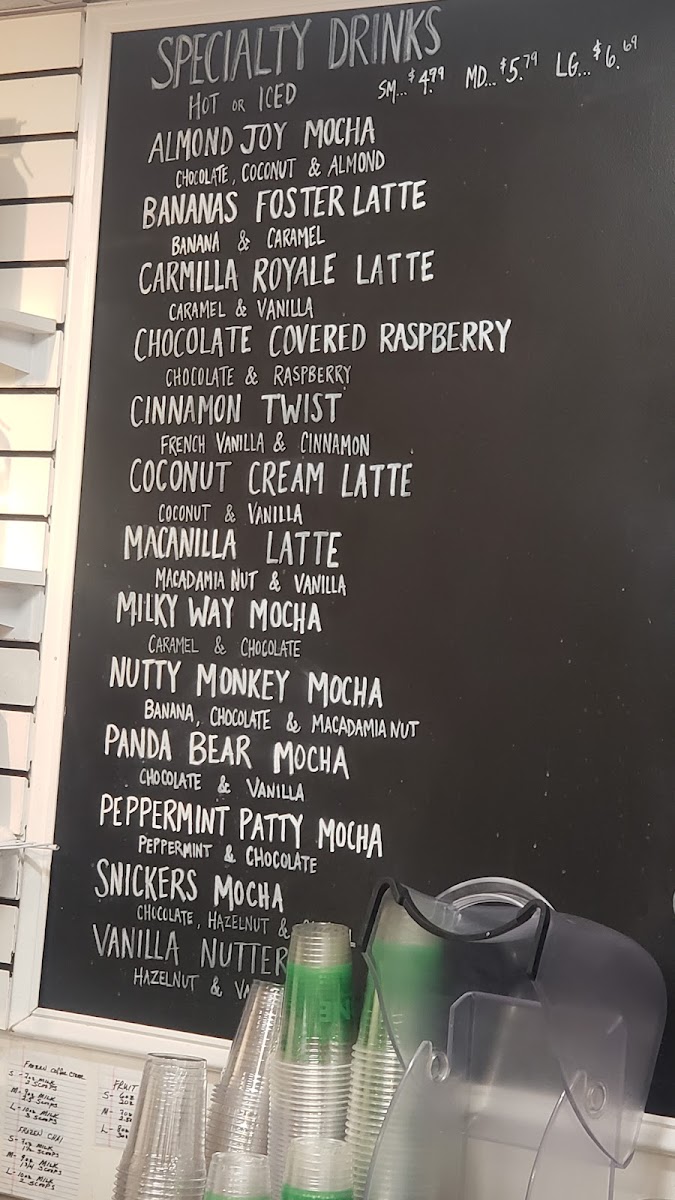 SPECIALTY DRINKS
HOT OR ICED
SM...$4.99 MD...$5.79 LG...$6.69
ALMOND JOY MOCHA
CHOCOLATE, COCONUT & ALMOND
BANANAS FOSTER LATTE
BANANA & CARAMEL
CARMILLA ROYALE LATTE
CARAMEL & VANILLA
CHOCOLATE COVERED RASPBERRY
CHOCOLATE & RASPBERRY
CINNAMON TWIST
FRENCH VANILLA & CINNAMON
COCONUT CREAM LATTE
COCONUT & VANILLA
MACANILLA LATTE
MACADAMIA NUT & VANILLA
MILKY WAY MOCHA
CARAMEL & CHOCOLATE
NUTTY MONKEY MOCHA
BANANA, CHOCOLATE & MACADAMIA NUT
PANDA BEAR MOCHA
CHOCOLATE & VANILLA
PEPPERMINT PATTY MOCHA
PEPPERMINT & CHOCOLATE
SNICKERS MOCHA
CHOCOLATE, HAZELNUT &
VANILLA NUTTER
HAZELNUT & VA
FROZEN COFFEE
S - 7oz MILK
2 SCOOPS
M - 9oz MILK
2.5 SCOOPS
L - 10oz MILK
3 SCOOPS
FROZEN CHAI
S - 7oz MILK
1½ SCOOPS
M - 9oz MILK
1¾ SCOOPS
L - 10oz MILK
2 SCOOPS
FRUIT
S - 6oz
M - 7oz
L - 8oz